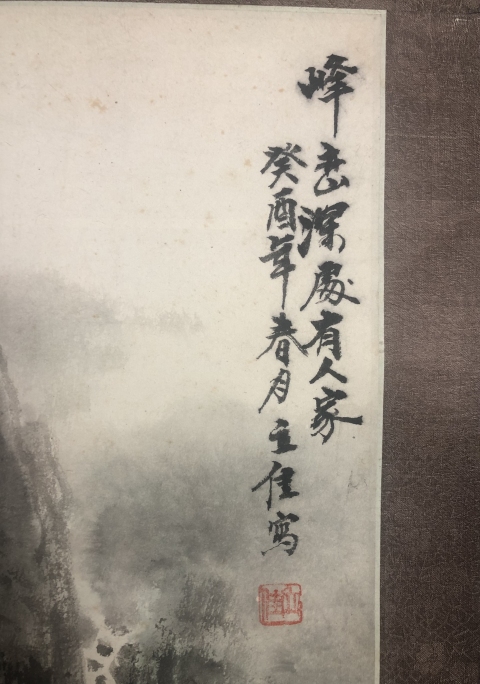 峰峦深處有人家
癸酉年春月立佳寫